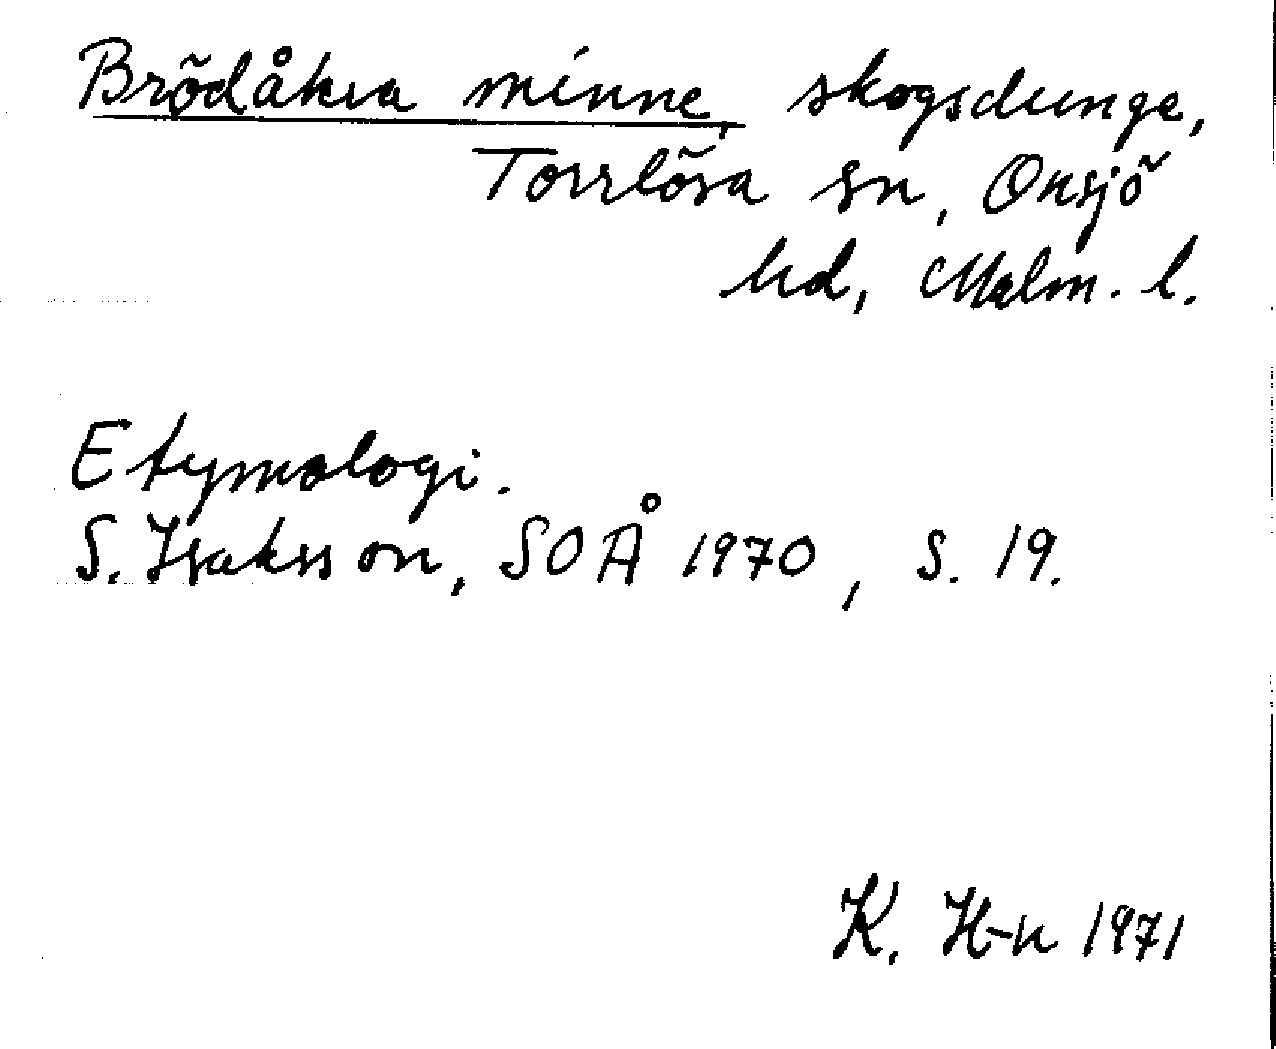 Brödåkra minne, skogsdunge,
Torrlösa sn, Onsjö
hd, Malm. l.
Etymologi.
S. Isaksson, SOÅ 1970, s. 19.
K. H-n 1971